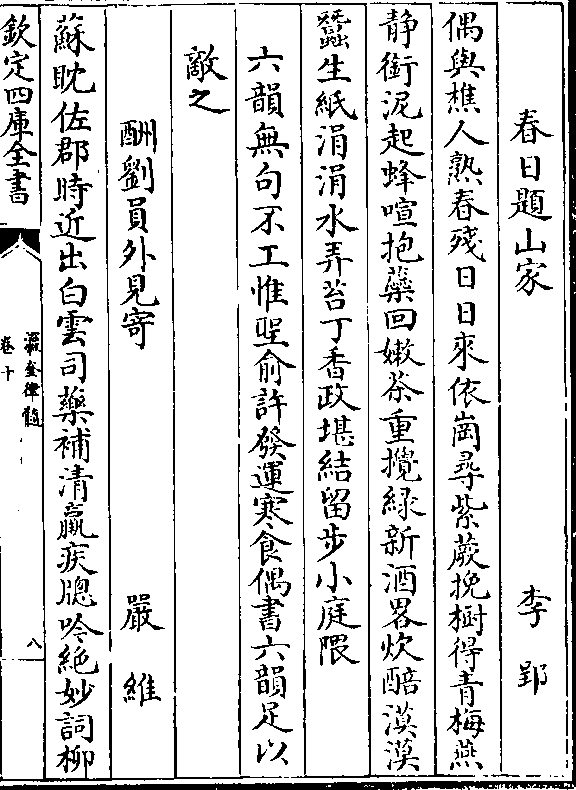 春日題山家 李郢
偶與樵人熟春殘日日來依崗尋紫蕨挽樹得青梅燕
静銜泥起蜂喧抱蘂回嫩茶重攪緑新酒畧炊醅漠漠
蠶生紙涓涓水弄苔丁香政堪結留步小庭隈
六韻無句不工惟聖俞許發運寒食偶書六韻足以
敵之
酬劉員外見寄 嚴維
蘇耽佐郡時近出白雲司藥補清羸疾牕吟絶妙詞柳
欽定四庫全書
瀛奎律髓
卷十
八